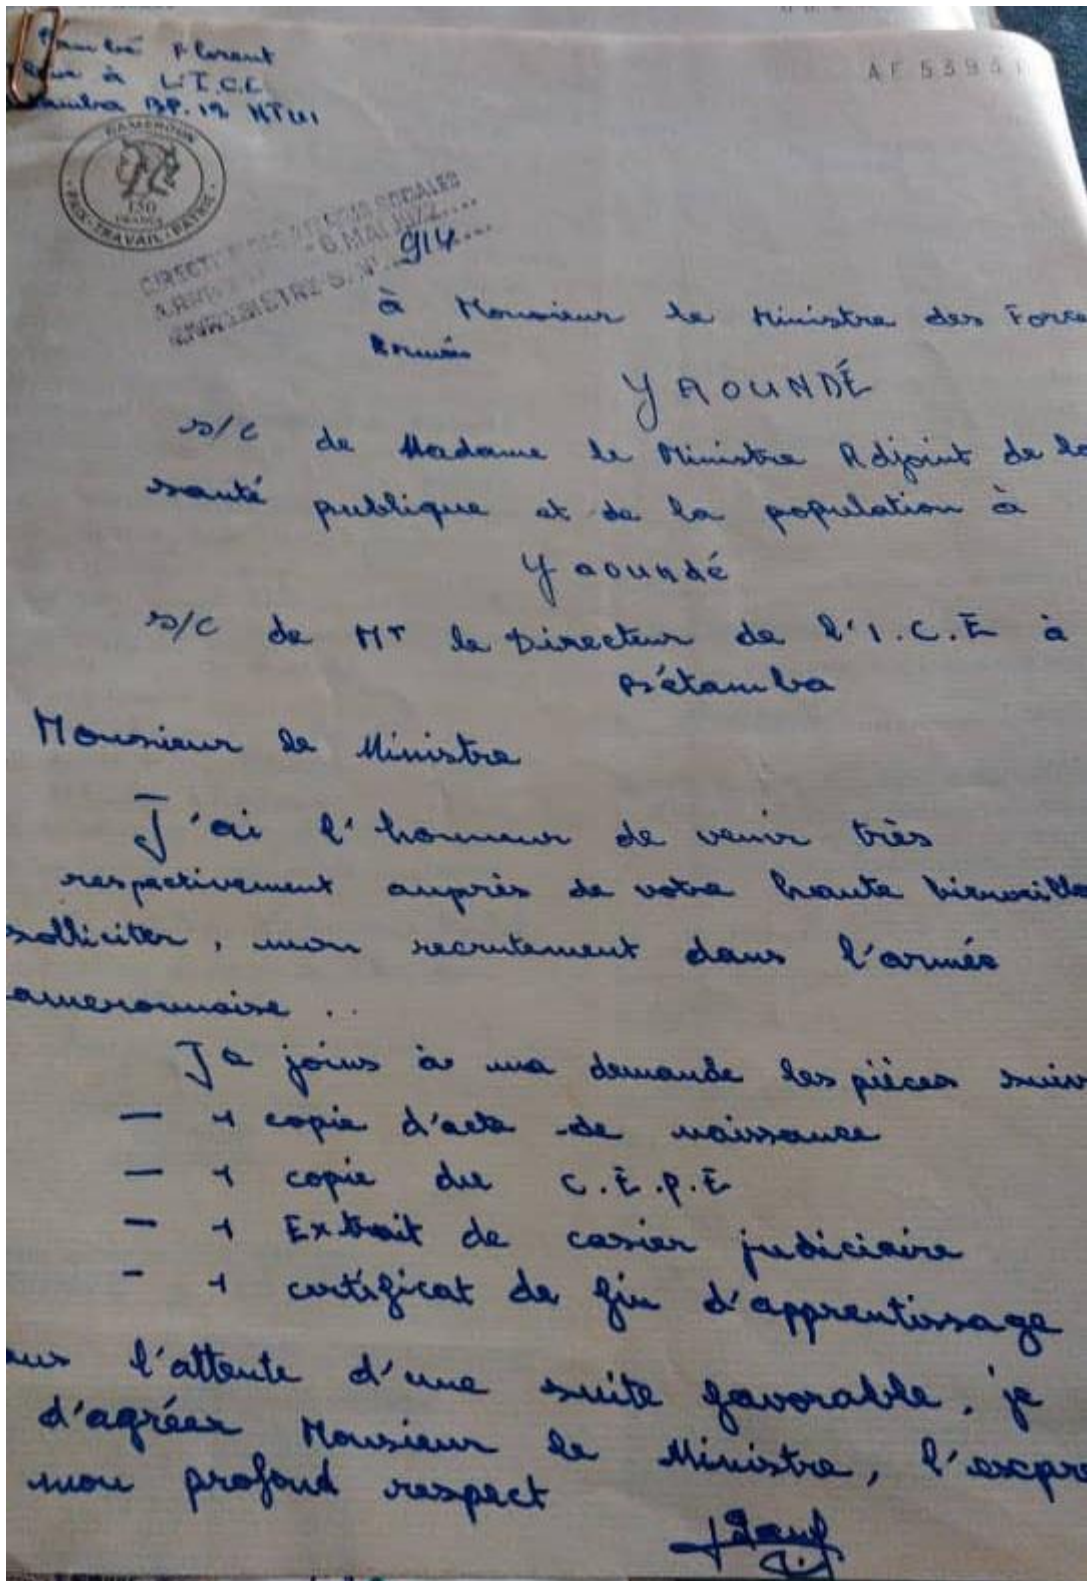 Florent
à L'I.C.E
BP.12 NTUI
AF 5394
CAMEROUN
150
FRANCS
PAIX-TRAVAIL-PATRIE
SOCIALES
6 MAI
914
à Monsieur le Ministre des Force
Armées
YAOUNDÉ
s/c de Madame le Ministre Adjoint de la
santé publique et de la population à
Yaoundé
s/c de Mr le Directeur de l'I.C.E à
Bétamba
Monsieur le Ministre
J'ai l'honneur de venir très
respectivement auprès de votre haute bienveilla
solliciter, mon recrutement dans l'armée
amerounaise ..
Je joins à ma demande les pièces suiv
- 1 copie d'acte de naissance
- 1 copie du C.E.P.E
- 1 Extrait de casier judiciaire
- 1 certificat de fin d'apprentissage
ans l'attente d'une suite favorable, je
d'agréer Monsieur le Ministre, l'expre
mon profond respect